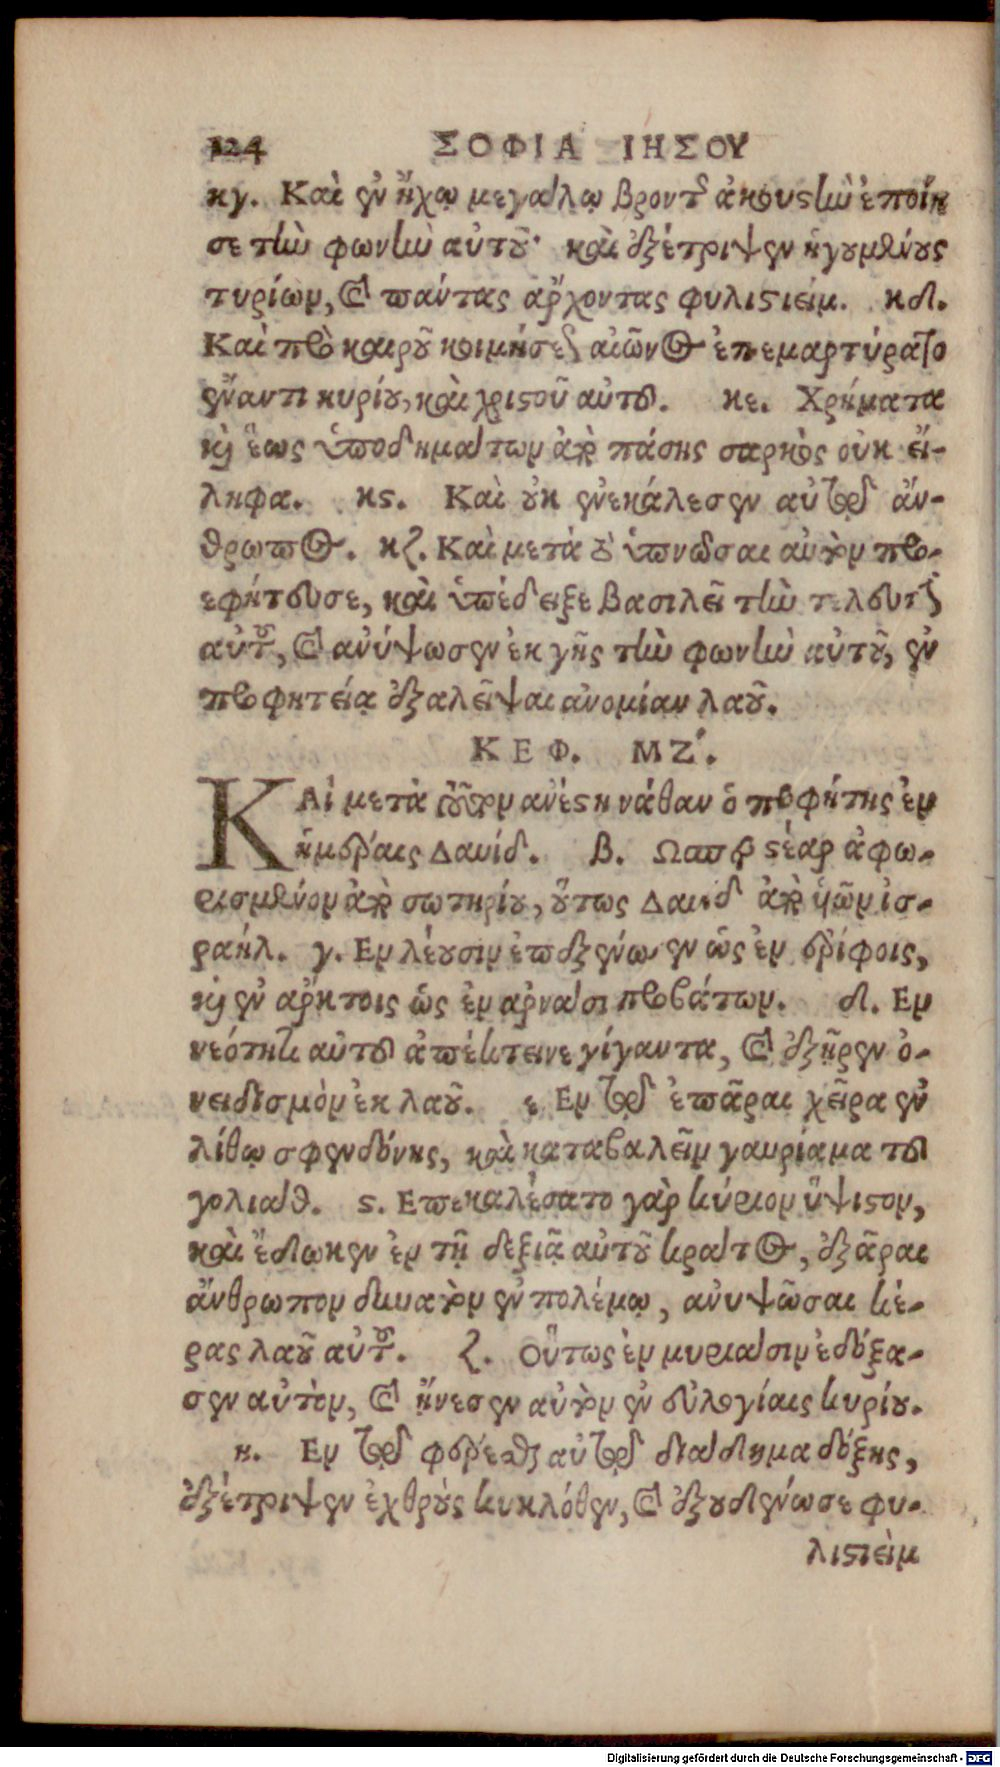 124 ΣΟΦΙΑ ΙΗΣΟΥ
κγ. Καὶ ἐν ἤχῳ μεγάλῳ βροντῆς ἀκουστὴν ἐποίη
σε τὴν φωνὴν αὐτοῦ· καὶ ἐξέτριψεν ἡγουμένους
τυρίων, καὶ πάντας ἄρχοντας φυλιστιείμ. κδ.
Καὶ πρὸ καιροῦ κοιμήσεως αἰῶνος ἐπεμαρτύρατο
ἔναντι κυρίου, καὶ χριστοῦ αὐτοῦ. κε. Χρήματα
καὶ ἕως ὑποδημάτων ἀπὸ πάσης σαρκὸς οὐκ εἴ-
ληφα. κς. Καὶ οὐκ ἐνεκάλεσεν αὐτῷ ἄν-
θρωπος. κζ. Καὶ μετὰ τὸ ὑπνῶσαι αὐτὸν προ-
εφήτευσε, καὶ ὑπέδειξε βασιλεῖ τὴν τελευτὴν
αὐτοῦ, καὶ ἀνύψωσεν ἐκ γῆς τὴν φωνὴν αὐτοῦ, ἐν
προφητείᾳ ἐξαλεῖψαι ἀνομίαν λαοῦ.
ΚΕΦ. ΜΖ΄.
ΚΑὶ μετὰ τοῦτον ἀνέστη νάθαν ὁ προφήτης ἐν
ἡμέραις Δαυίδ. β. Ωσπερ στέαρ ἀφω-
ρισμένον ἀπὸ σωτηρίου, οὕτως Δαυὶδ ἀπὸ υἱῶν ἰσ-
ραήλ. γ. Εν λέουσιν ἔπαιξεν ὡς ἐν ἐρίφοις,
καὶ ἐν ἄρκτοις ὡς ἐν ἀρνάσι προβάτων. δ. Εν
νεότητι αὐτοῦ ἀπέκτεινε γίγαντα, καὶ ἐξῆρεν ὀ-
νειδισμὸν ἐκ λαοῦ. ε. Εν τῷ ἐπᾶραι χεῖρα ἐν
λίθῳ σφενδόνης, καὶ καταβαλεῖν γαυρίαμα τοῦ
γολιάθ. ς. Επεκαλέσατο γὰρ κύριον ὕψιστον,
καὶ ἔδωκεν ἐν τῇ δεξιᾷ αὐτοῦ κράτος, ἐξᾶραι
ἄνθρωπον δυνατὸν ἐν πολέμῳ, ἀνυψῶσαι κέ-
ρας λαοῦ αὐτοῦ. ζ. Οὕτως ἐν μυριάσιν ἐδόξα-
σεν αὐτὸν, καὶ ᾔνεσεν αὐτὸν ἐν εὐλογίαις κυρίου.
η. Εν τῷ φέρεσθαι αὐτῷ διάδημα δόξης,
ἐξέτριψεν ἐχθροὺς κυκλόθεν, καὶ ἐξουδένωσε φυ-
λιστιεὶμ
Digitalisierung gefördert durch die Deutsche Forschungsgemeinschaft - DFG